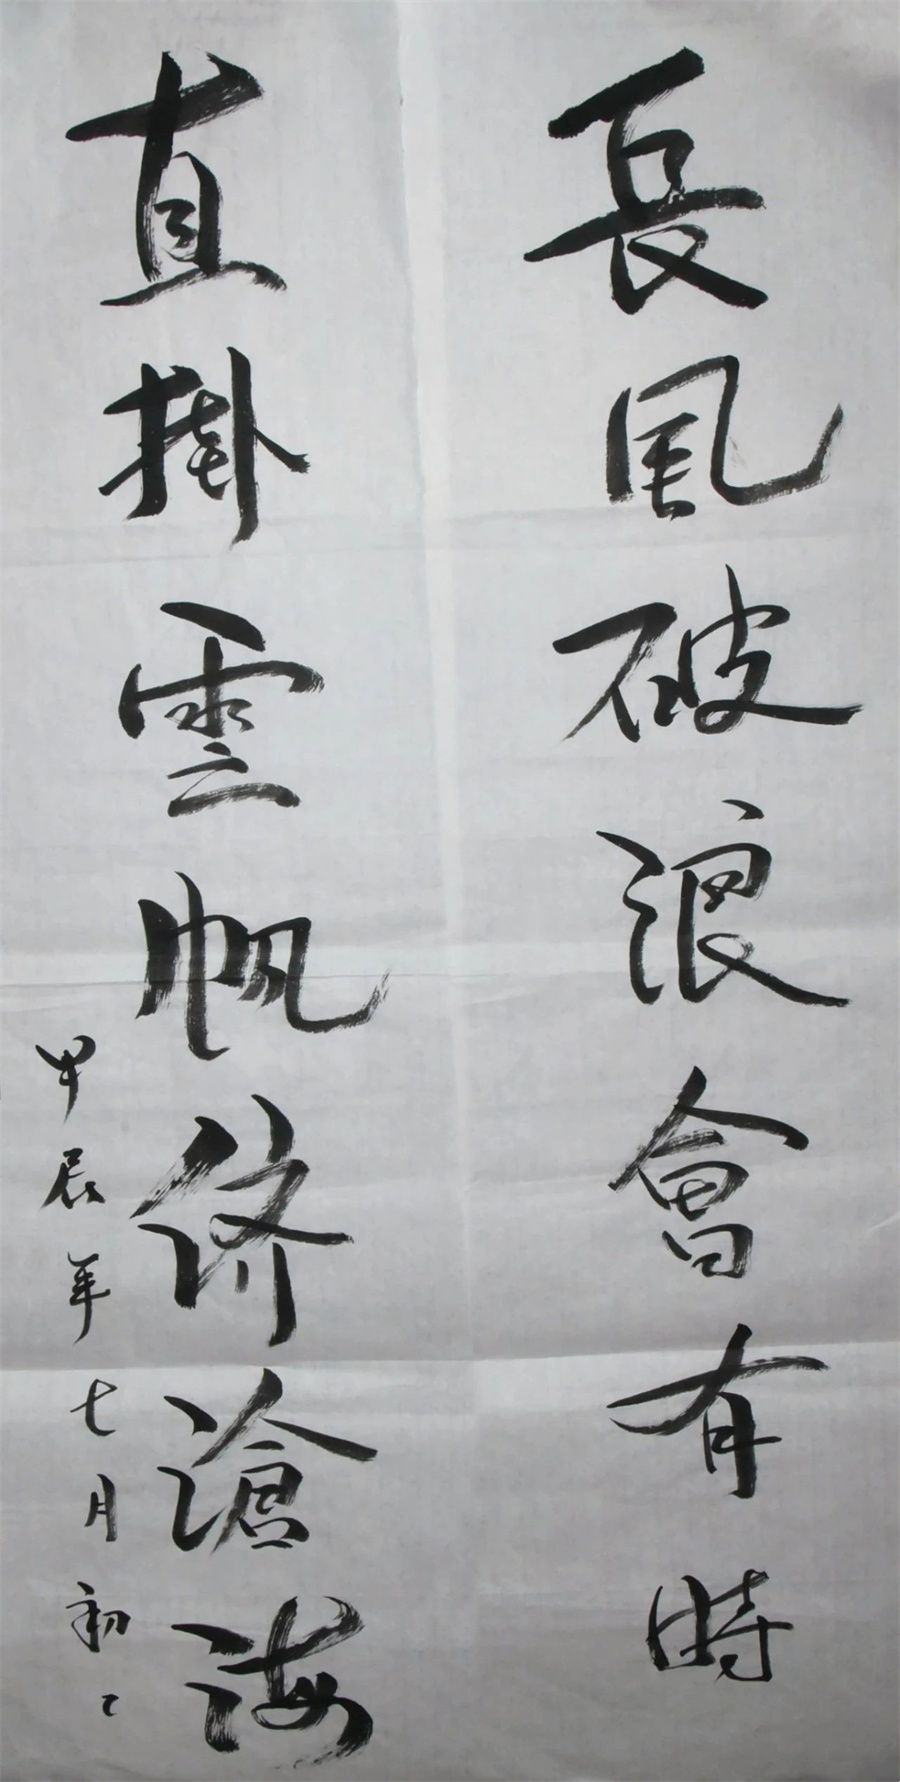 長風破浪會有時
直掛雲帆济滄海
甲辰年七月初二